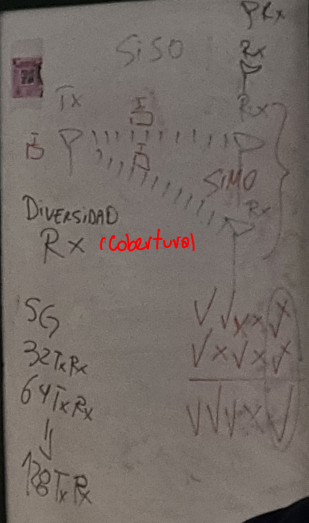 PRx
SISO
Rx
Tx
Rx
SIMO
Rx
DIVERSIDAD
Rx (cobertura)
5G
32TxRx
64TxRx
128TxRx
✓✓xx✓
✓x✓x✓
✓✓✓x✓